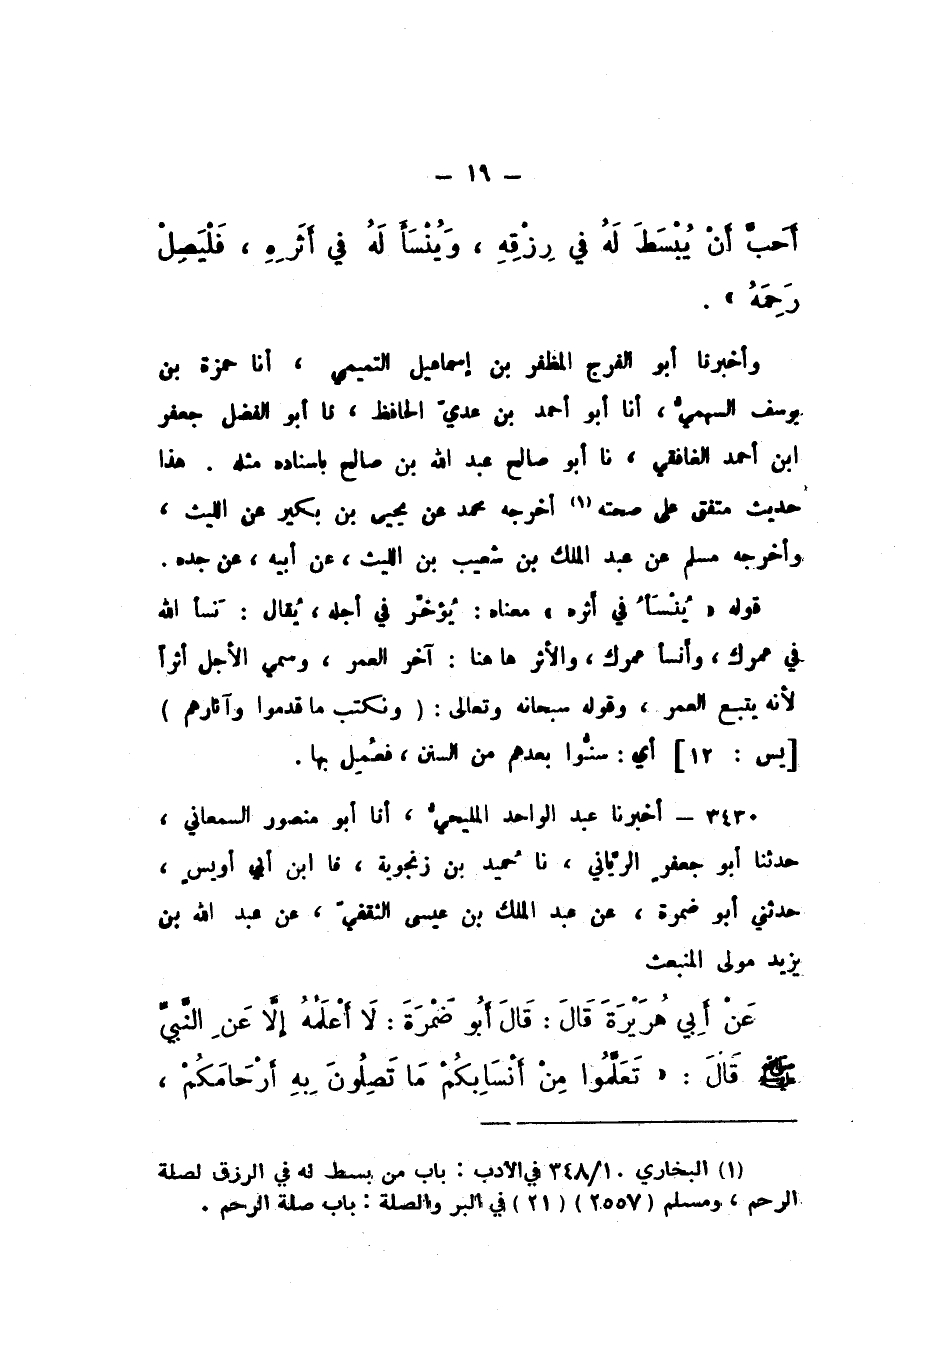 — ١٩ —
أَحَبَّ أَنْ يُبْسَطَ لَهُ في رِزْقِهِ ، وَيُنْسَأَ لَهُ في أَثَرِهِ ، فَلْيَصِلْ
رَحِمَهُ » .
وأخبرنا أبو الفرج المظفر بن إسماعيل التميمي ، أنا حمزة بن
يوسف السهميُّ ، أنا أبو أحمد بن عديّ الحافظ ، نا أبو الفضل جعفر
ابن أحمد الغافقي ، نا أبو صالح عبد الله بن صالح باسناده مثله . هذا
حديث متفق على صحته (١) أخرجه محمد عن يحيى بن بكير عن الليث ،
وأخرجه مسلم عن عبد الملك بن شعيب بن الليث ، عن أبيه ، عن جده .
قوله « يُنْسَأُ في أثره » معناه : يُؤخَّر في أجله ، يُقال : نَسأ الله
في عمرك ، وأنسأ عمرك ، والأثر ها هنا : آخر العمر ، وسمي الأجل أثراً
لأنه يتبع العمر ، وقوله سبحانه وتعالى : ( ونكتب ما قدموا وآثارهم )
[يس : ١٢] أي : سنُّوا بعدهم من السنن ، فعُمِل بها .
٣٤٣٠ — أخبرنا عبد الواحد المليحيُّ ، أنا أبو منصور السمعاني ،
حدثنا أبو جعفرٍ الريّاني ، نا حُميد بن زنجوية ، نا ابن أبي أويسٍ ،
حدثني أبو ضمرة ، عن عبد الملك بن عيسى الثقفيّ ، عن عبد الله بن
يزيد مولى المنبعث
عَنْ أَبِي هُرَيْرَةَ قَالَ : قَالَ أَبُو ضَمْرَةَ : لَا أَعْلَمُهُ إِلَّا عَنِ النَّبِيِّ
ﷺ قَالَ : « تَعَلَّمُوا مِنْ أَنْسَابِكُمْ مَا تَصِلُونَ بِهِ أَرْحَامَكُمْ ،
(١) البخاري ٣٤٨/١٠ في الأدب : باب من بسط له في الرزق لصلة
الرحم ، ومسلم (٢٥٥٧) (٢١) في البر والصلة : باب صلة الرحم .